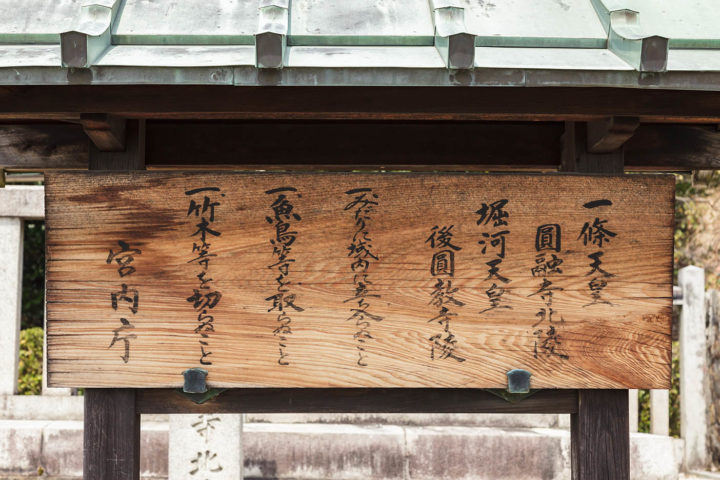 一條天皇
圓融寺北陵
堀河天皇
後圓教寺陵
一みだりに域内に立ち入らぬこと
一魚鳥等を取らぬこと
一竹木等を切らぬこと
宮内庁
寺北